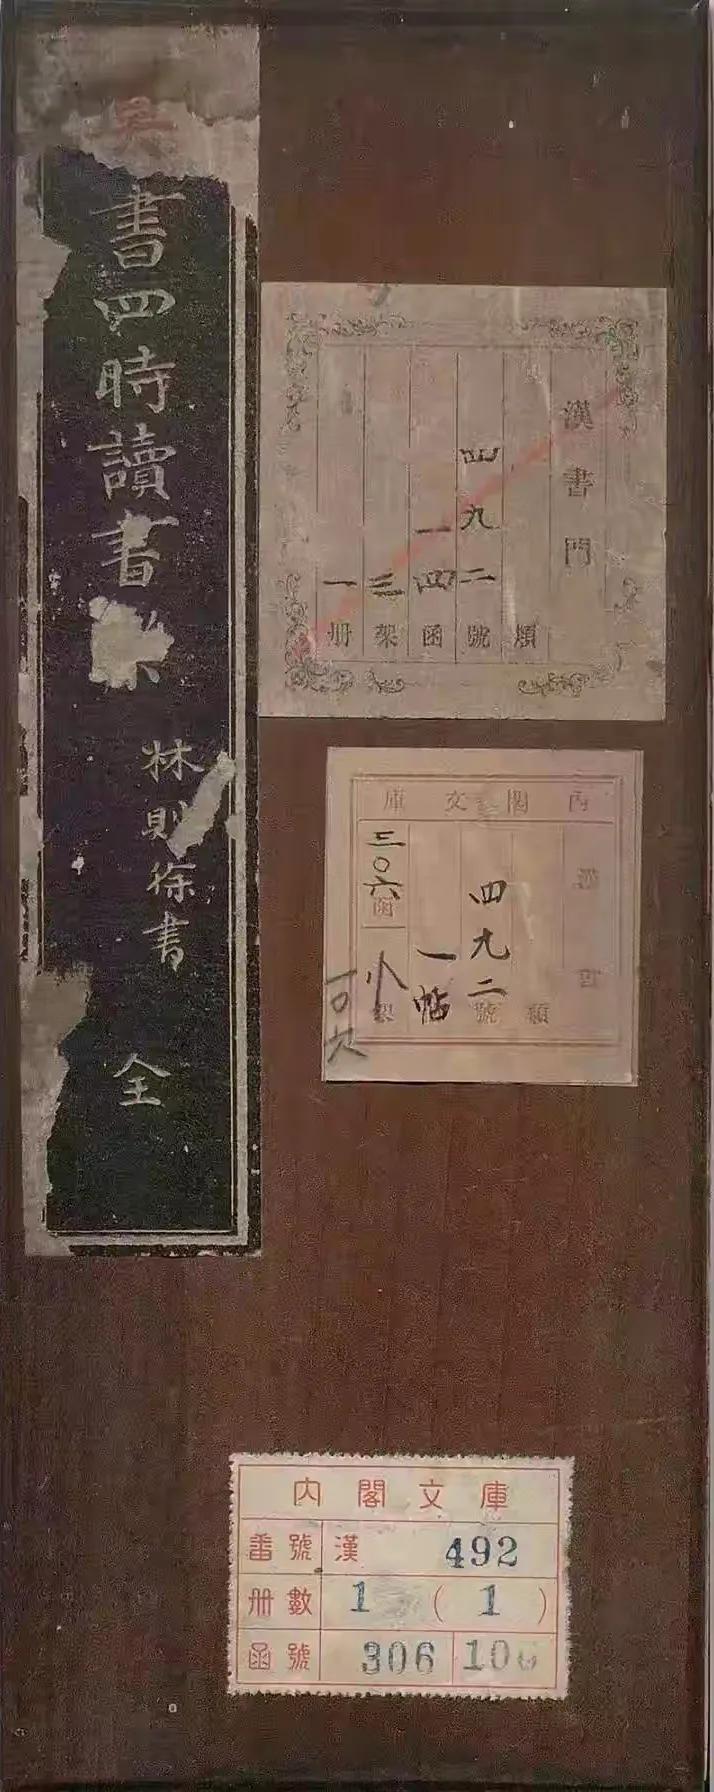 書四時讀書樂
林則徐書
全
漢書門
類
四九二號
一四函
三架
一册
內閣文庫
漢書
類
四九二號
一帖
三〇六函
架
一〇六
內閣文庫
番號 漢 492
册數 1 ( 1 )
函號 306 106